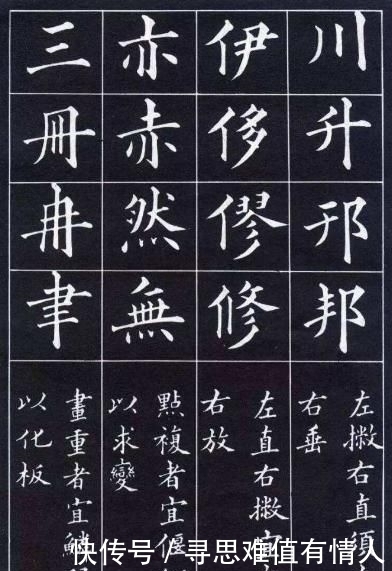 川升邦
左撇右直須
右垂
伊侈僇修
左直右撇宜
右放
亦赤然無
點複者宜偃
以求變
三冊冉聿
畫重者宜鱗
以化板
快传号/寻思难值有情人